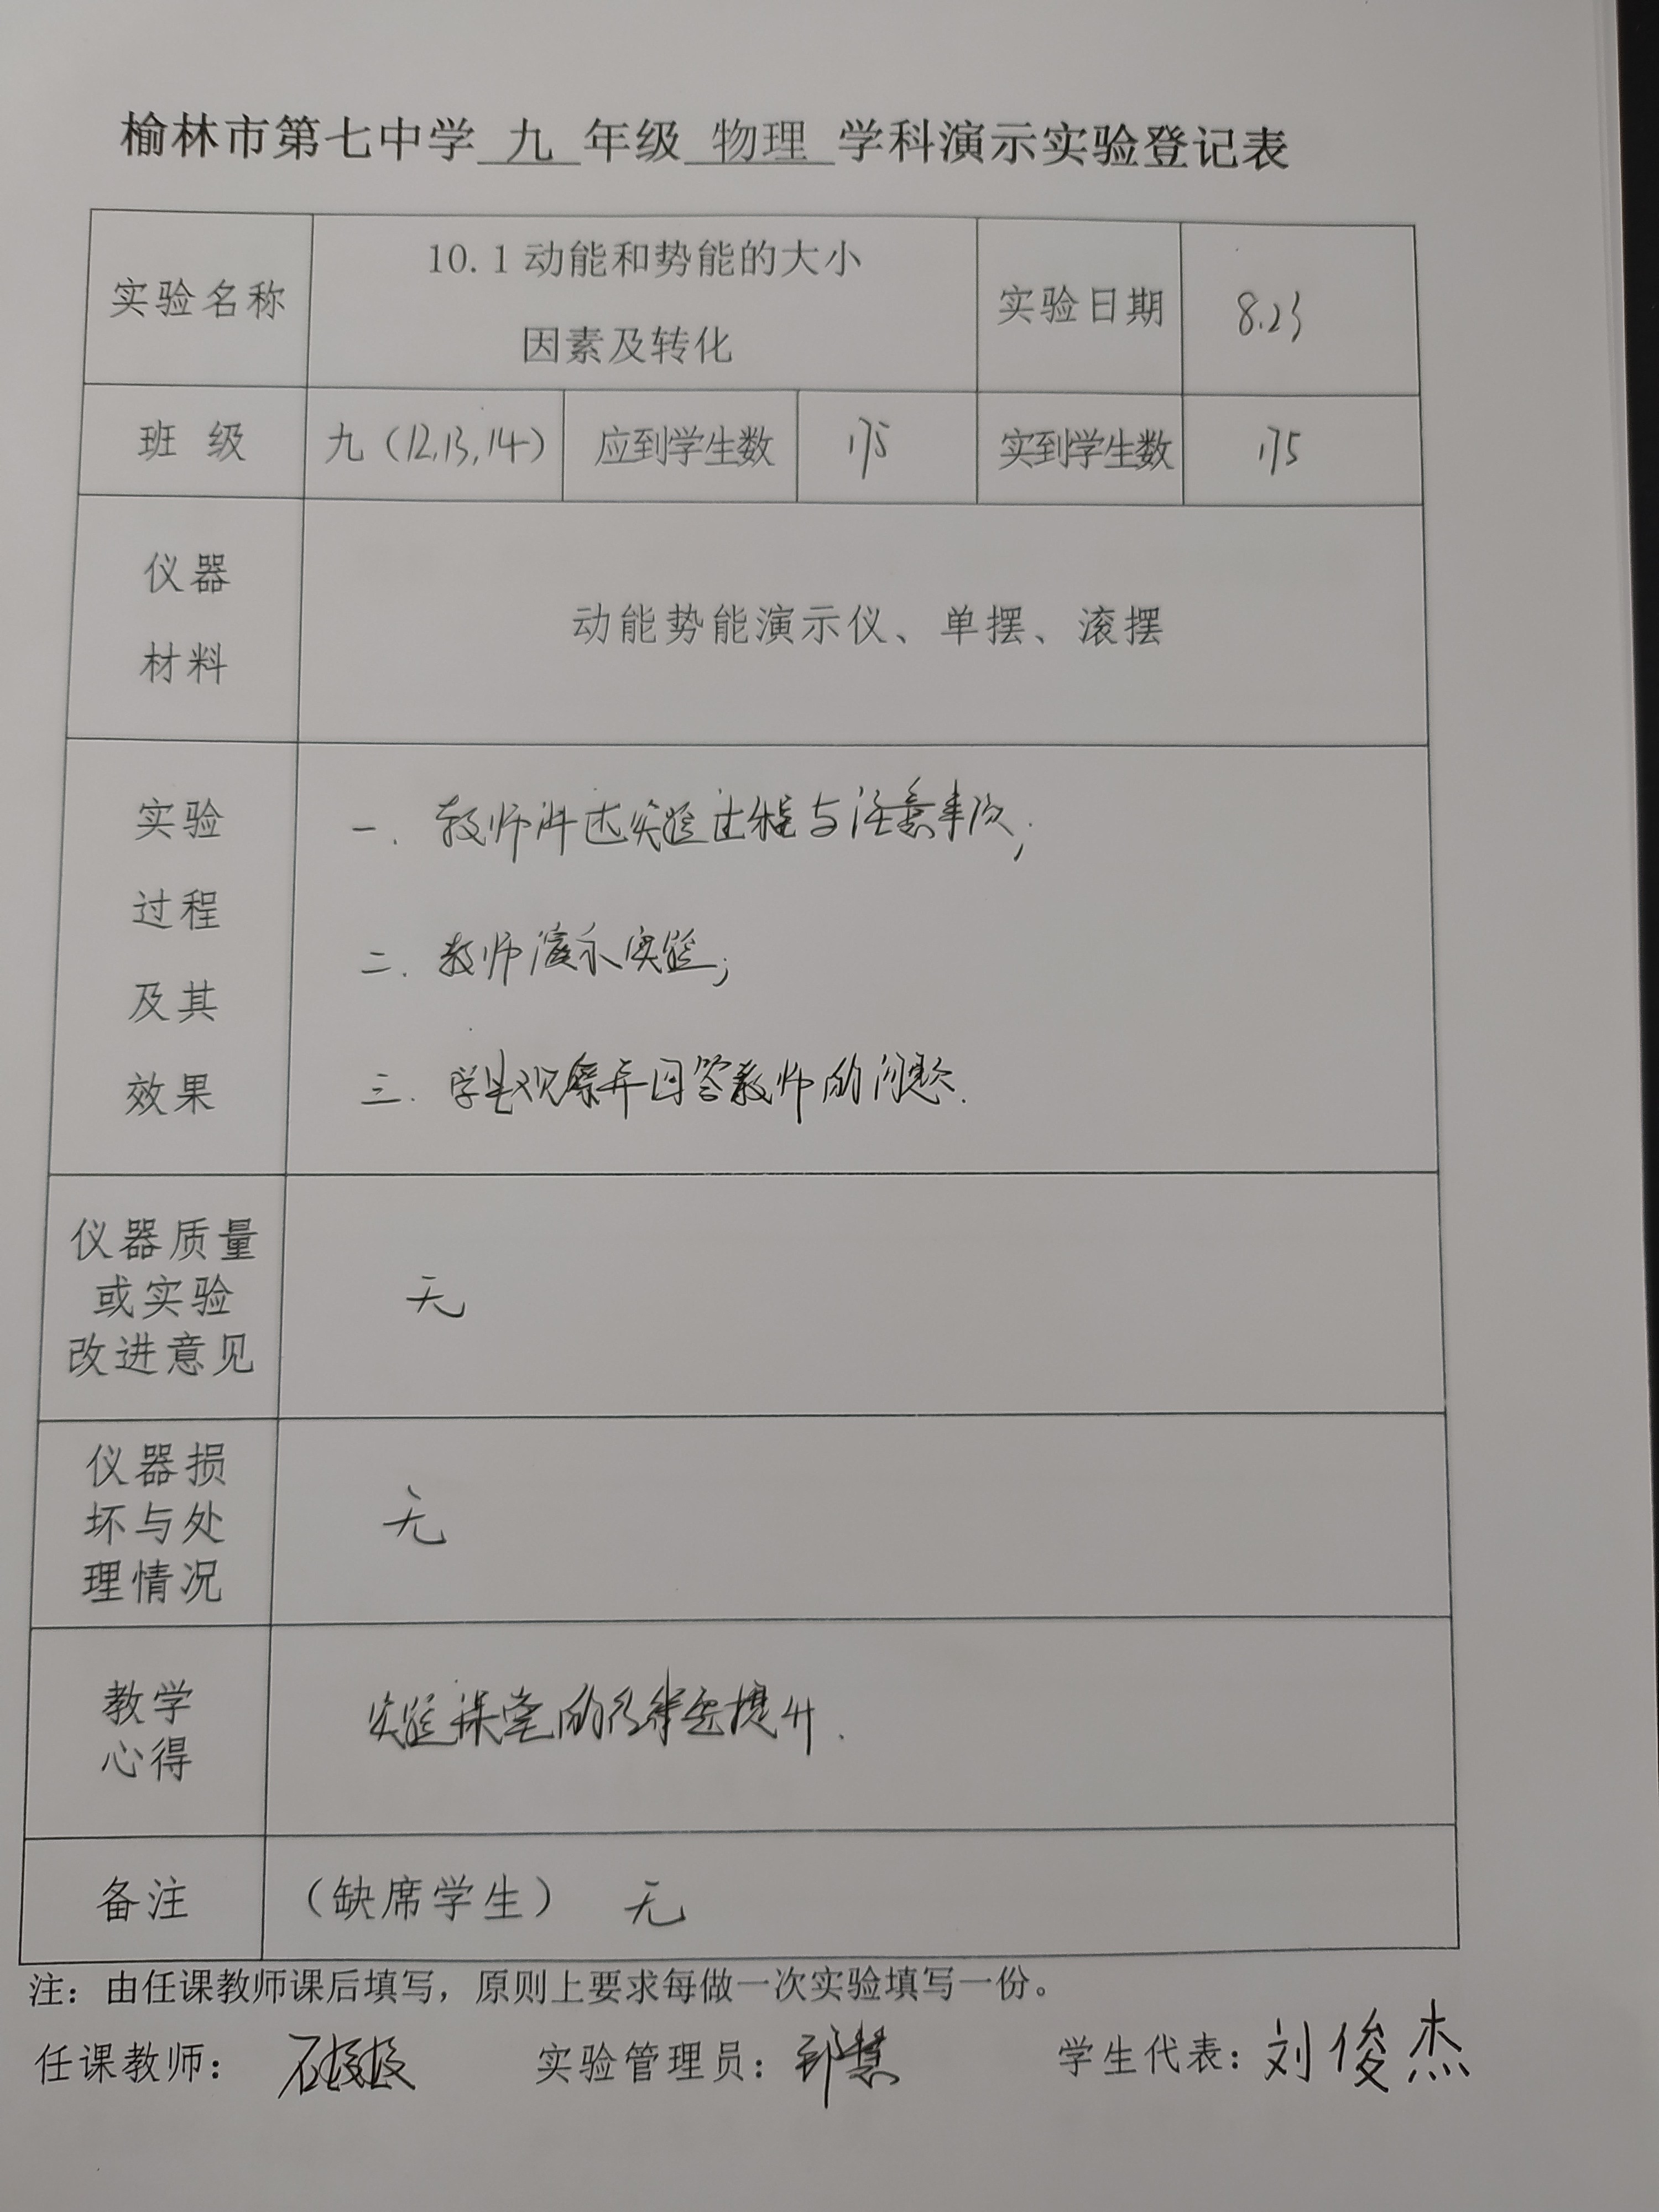 榆林市第七中学 九 年级 物理 学科演示实验登记表
实验名称
10.1动能和势能的大小
因素及转化
实验日期
8.23
班 级
九（12,13,14）
应到学生数
175
实到学生数
175
仪器
材料
动能势能演示仪、单摆、滚摆
实验
过程
及其
效果
一. 教师讲述实验过程与注意事项;
二. 教师演示实验;
三. 学生观察并回答教师的问题.
仪器质量
或实验
改进意见
无
仪器损
坏与处
理情况
无
教学
心得
实验课堂的效率要提升.
备注
（缺席学生） 无
注：由任课教师课后填写，原则上要求每做一次实验填写一份。
任课教师： 实验管理员： 学生代表：刘俊杰